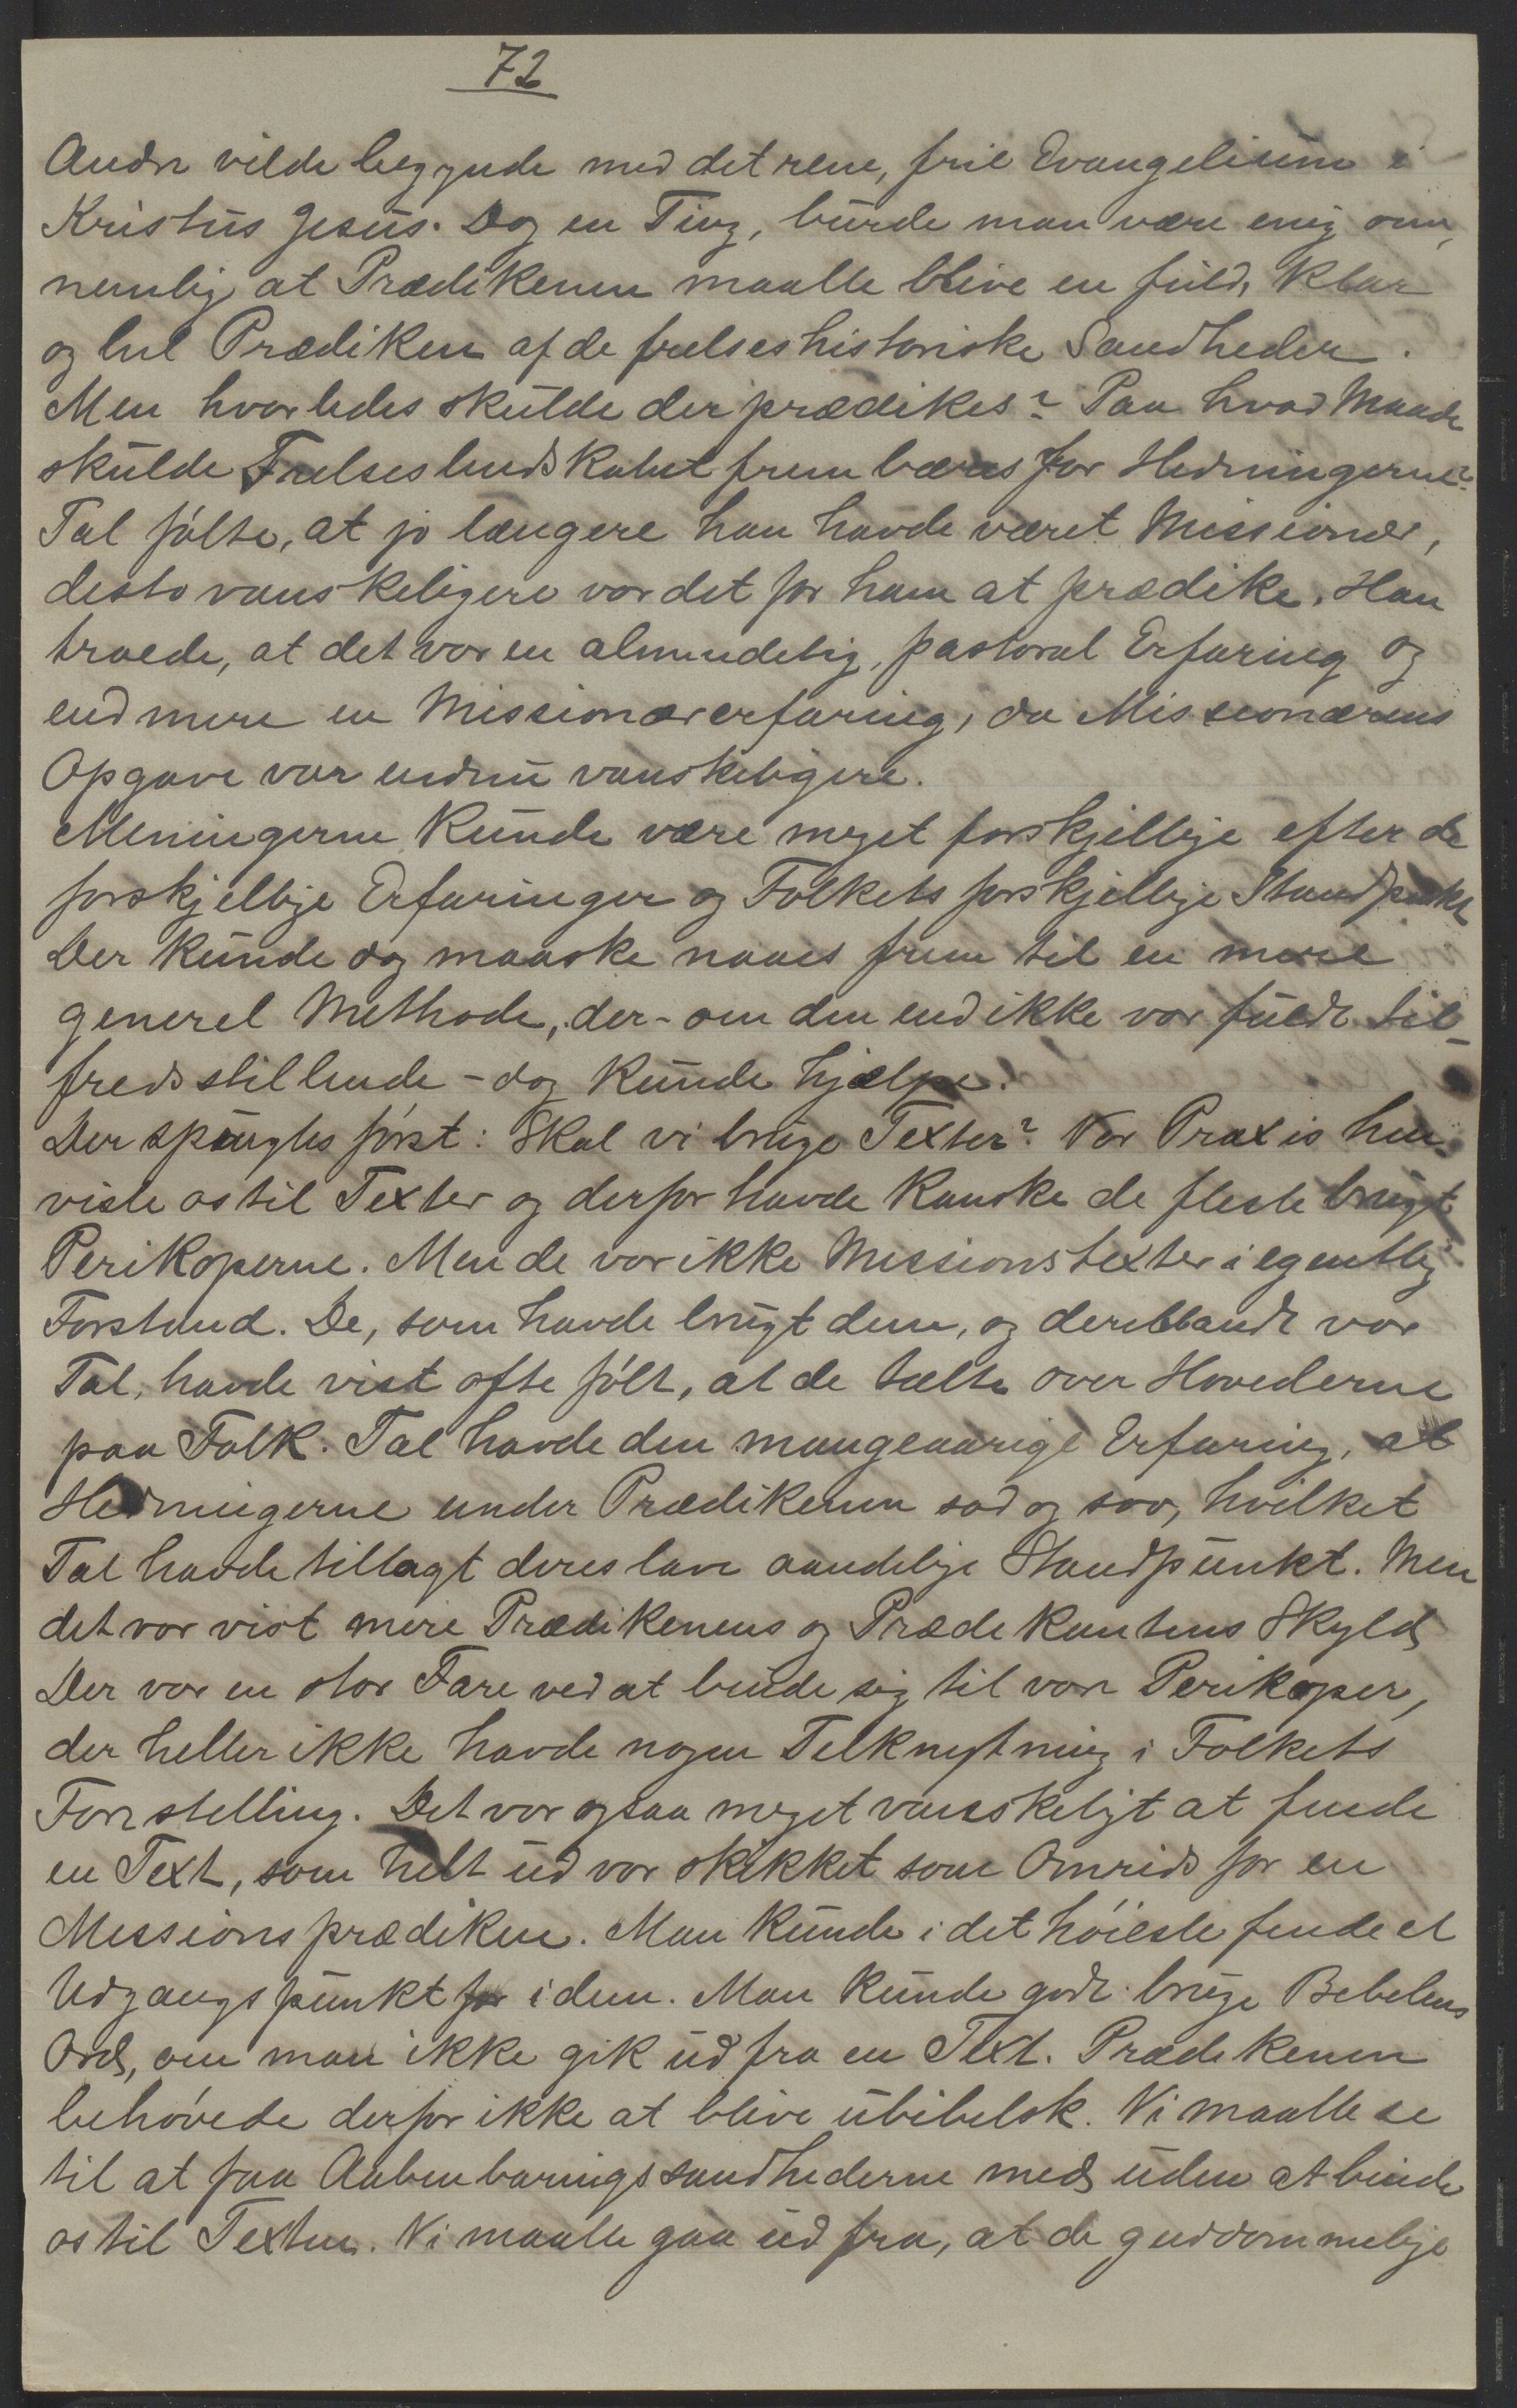 72
Andre vilde begynde med det rene, frie Evangelium i
Kristus Jesus. Dog en Ting, burde man være enig om,
nemlig at Prædikenen maatte blive en fuld, klar
og hel Prædiken af de frelseshistoriske Sandheder.
Men hvorledes skulde der prædikes? Paa hvad Maade
skulde Frelsesbudskabet frembæres for Hedningerne?
Tal følte, at jo længere han havde været Missionær,
desto vanskeligere var det for ham at prædike. Han
troede, at det var en almindelig, pastoral Erfaring og
end mere en Missionærerfaring, da Missionærens
Opgave var endnu vanskeligere.
Meningerne kunde være meget forskjellige efter de
forskjellige Erfaringer og Folkets forskjellige Standpunkt
Der kunde dog maaske naaes frem til en mere
generel Methode, der - om den end ikke var fuldt til-
fredsstillende - dog kunde hjælpe.
Der spurgtes først: Skal vi bruge Texter? Vor Praxis hen-
viste os til Texter og derfor havde kanske de fleste brugt
Perikoperne. Men de var ikke Missionstexter i egentlig
Forstand. De, som havde brugt dem, og deriblandt var
Tal, havde vist ofte følt, at de talte over Hovederne
paa Folk. Tal havde den mangeaarige Erfaring, at
Hedningerne under Prædikenen sad og sov, hvilket
Tal havde tillagt deres lave aandelige Standpunkt. Men
det var vist mere Prædikenens og Prædikantens Skyld,
Der var en stor Fare ved at binde sig til vore Perikoper,
der heller ikke havde nogen Tilknytning i Folkets
Forestilling. Det var ogsaa meget vanskeligt at finde
en Text, som helt ud var skikket som Omrids for en
Missionsprædiken. Man kunde i det høieste finde et
Udgangspunkt for i dem. Man kunde godt bruge Bibelens
Ord, om man ikke gik ud fra en Text. Prædikenen
behøvede derfor ikke at blive ubibelsk. Vi maatte se
til at faa Aabenbaringssandhederne med uden at binde
os til Texten. Vi maatte gaa ud fra, at de guddommelige